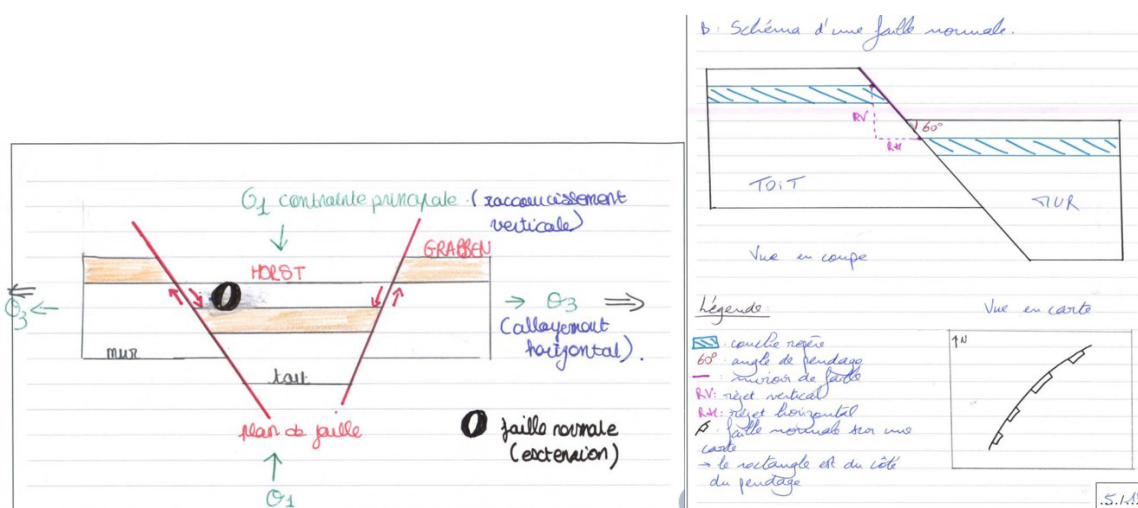 σ1 contrainte principale (raccourcissement
verticale)
GRABBEN
HORST
σ3
σ3
(allongement
horizontal).
mur
toit
plan de faille
0 faille normale
(extension)
σ1
B: Schéma d'une faille normale.
RV
60°
RH
TOIT
MUR
Vue en coupe
Légende:
couche repère
60° angle de pendage
miroir de faille
RV: rejet vertical
RH: rejet horizontal
faille normale sur une
carte
→ le rectangle est du côté
du pendage
Vue en carte
↑N